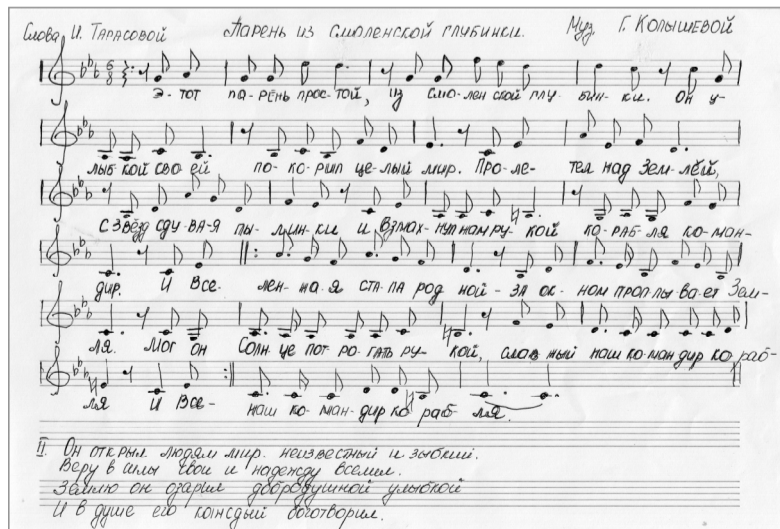 Слова И. Тарасовой Парень из Смоленской глубинки. Муз. Г. Колышевой
Э-тот па-рень прос-той, из смо-лен ской глу-бин-ки. Он у-
лыб-кой сво-ей по-ко-рил це-лый мир. Про-ле-тел над Зем-лёй,
с звёзд сду-ва-я пы-лин-ки и взмах-нул нам ру-кой ко-раб-ля ко-ман-
дир. И Все-лен-на-я ста-ла род ной-за ок-ном проплы-ва-ет Зем-
ля. Мог он Солн-це пот-ро-гать ру-кой, слав ный наш ко-ман дир ко-раб-
ля И Все-наш ко-ман-дир ко раб-ля.
II. Он открыл людям мир. неизвестный и зыбкий.
Веру в силы твои и надежду вселил.
Землю он озарил добродушной улыбкой
И в душе его каждый боготворил.